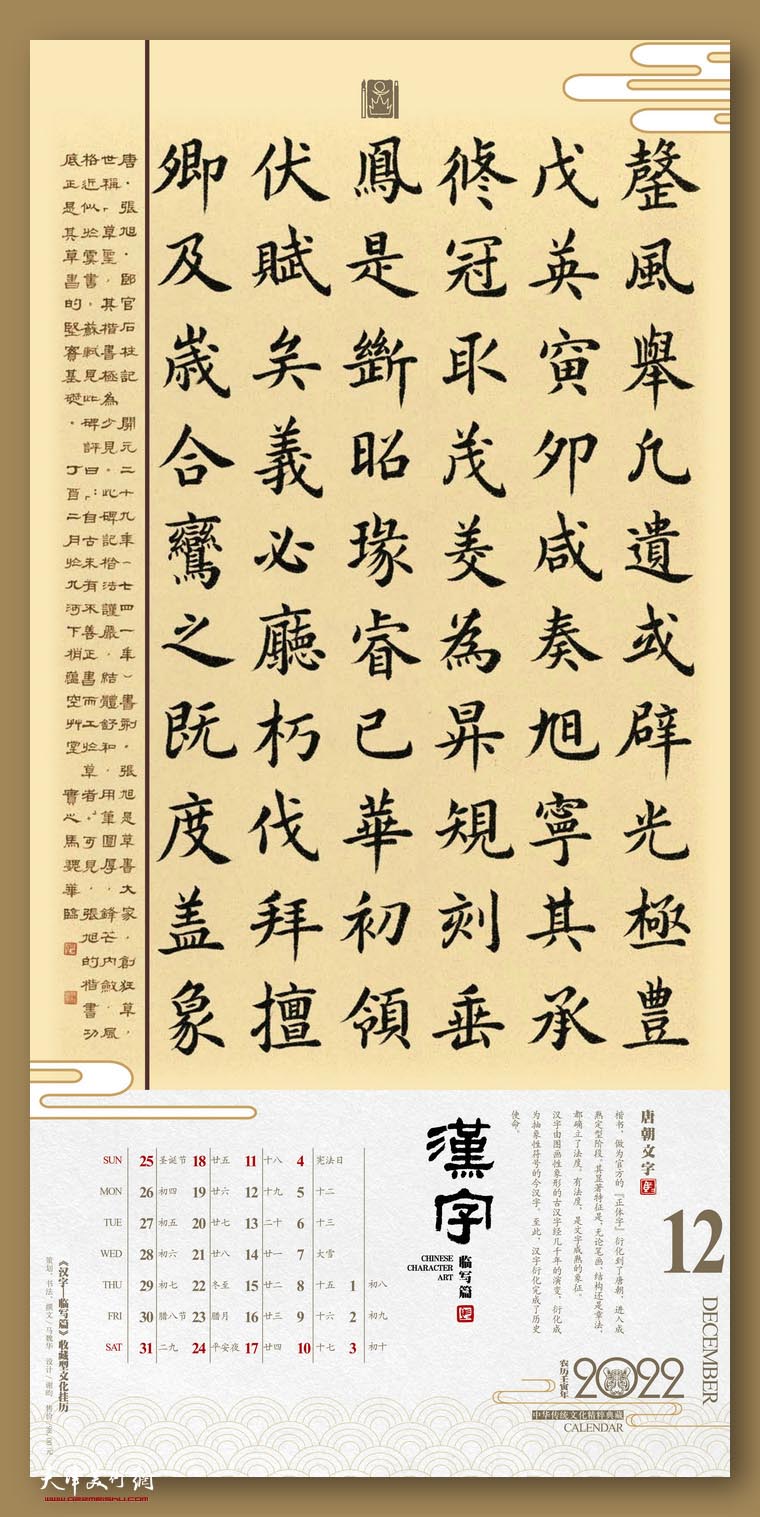 罄風舉凡遺或辟光極豐
戊英寅卯咸奏旭寧其承
修冠取茂美為昇規刻垂
鳳是斷昭瑑睿已華初領
伏賦矣義必廳朽伐拜擅
卿及歲合鸞之既度盖象
唐·張旭·郎官石柱記·開元二十九年(七四一年)書刻。張旭是草書大家,創狂草,
世稱「草聖」,其楷書極為少見。此碑記楷法謹嚴,結體舒和,用筆圓厚,鋒芒內斂,風
格近似於虞書。蘇軾見此碑評曰:「自古未有不善正書而工於草者」。可見,張旭的楷書功
底正是其草書的堅實基礎。丁酉二月於九河下梢蘊空艸堂 實心馬魏華臨
唐朝文字
楷书,做为官方的『正体字』衍化到了唐朝,进入成
熟定型阶段,其显著特征是:无论笔画、结构还是章法,
都确立了法度。有法度,是文字成熟的象征。
汉字由图画性象形的古汉字经几千年的演变,衍化成
为抽象性符号的今汉字。至此,汉字衍化完成了历史
使命。
12
DECEMBER
漢字
临写篇
CHINESE
CHARACTER
ART
SUN 25 圣诞节 18 廿五 11 十八 4 宪法日
MON 26 初四 19 廿六 12 十九 5 十二
TUE 27 初五 20 廿七 13 二十 6 十三
WED 28 初六 21 廿八 14 廿一 7 大雪
THU 29 初七 22 冬至 15 廿二 8 十五 1 初八
FRI 30 腊八节 23 腊月 16 廿三 9 十六 2 初九
SAT 31 二九 24 平安夜 17 廿四 10 十七 3 初十
农历壬寅年
2022
中华传统文化精粹典藏
CALENDAR
《汉字—临写篇》收藏型文化挂历
策划、书法、撰文/马魏华 设计/谢昀 售价/98.00元
天津美術網
www.021meishu.com